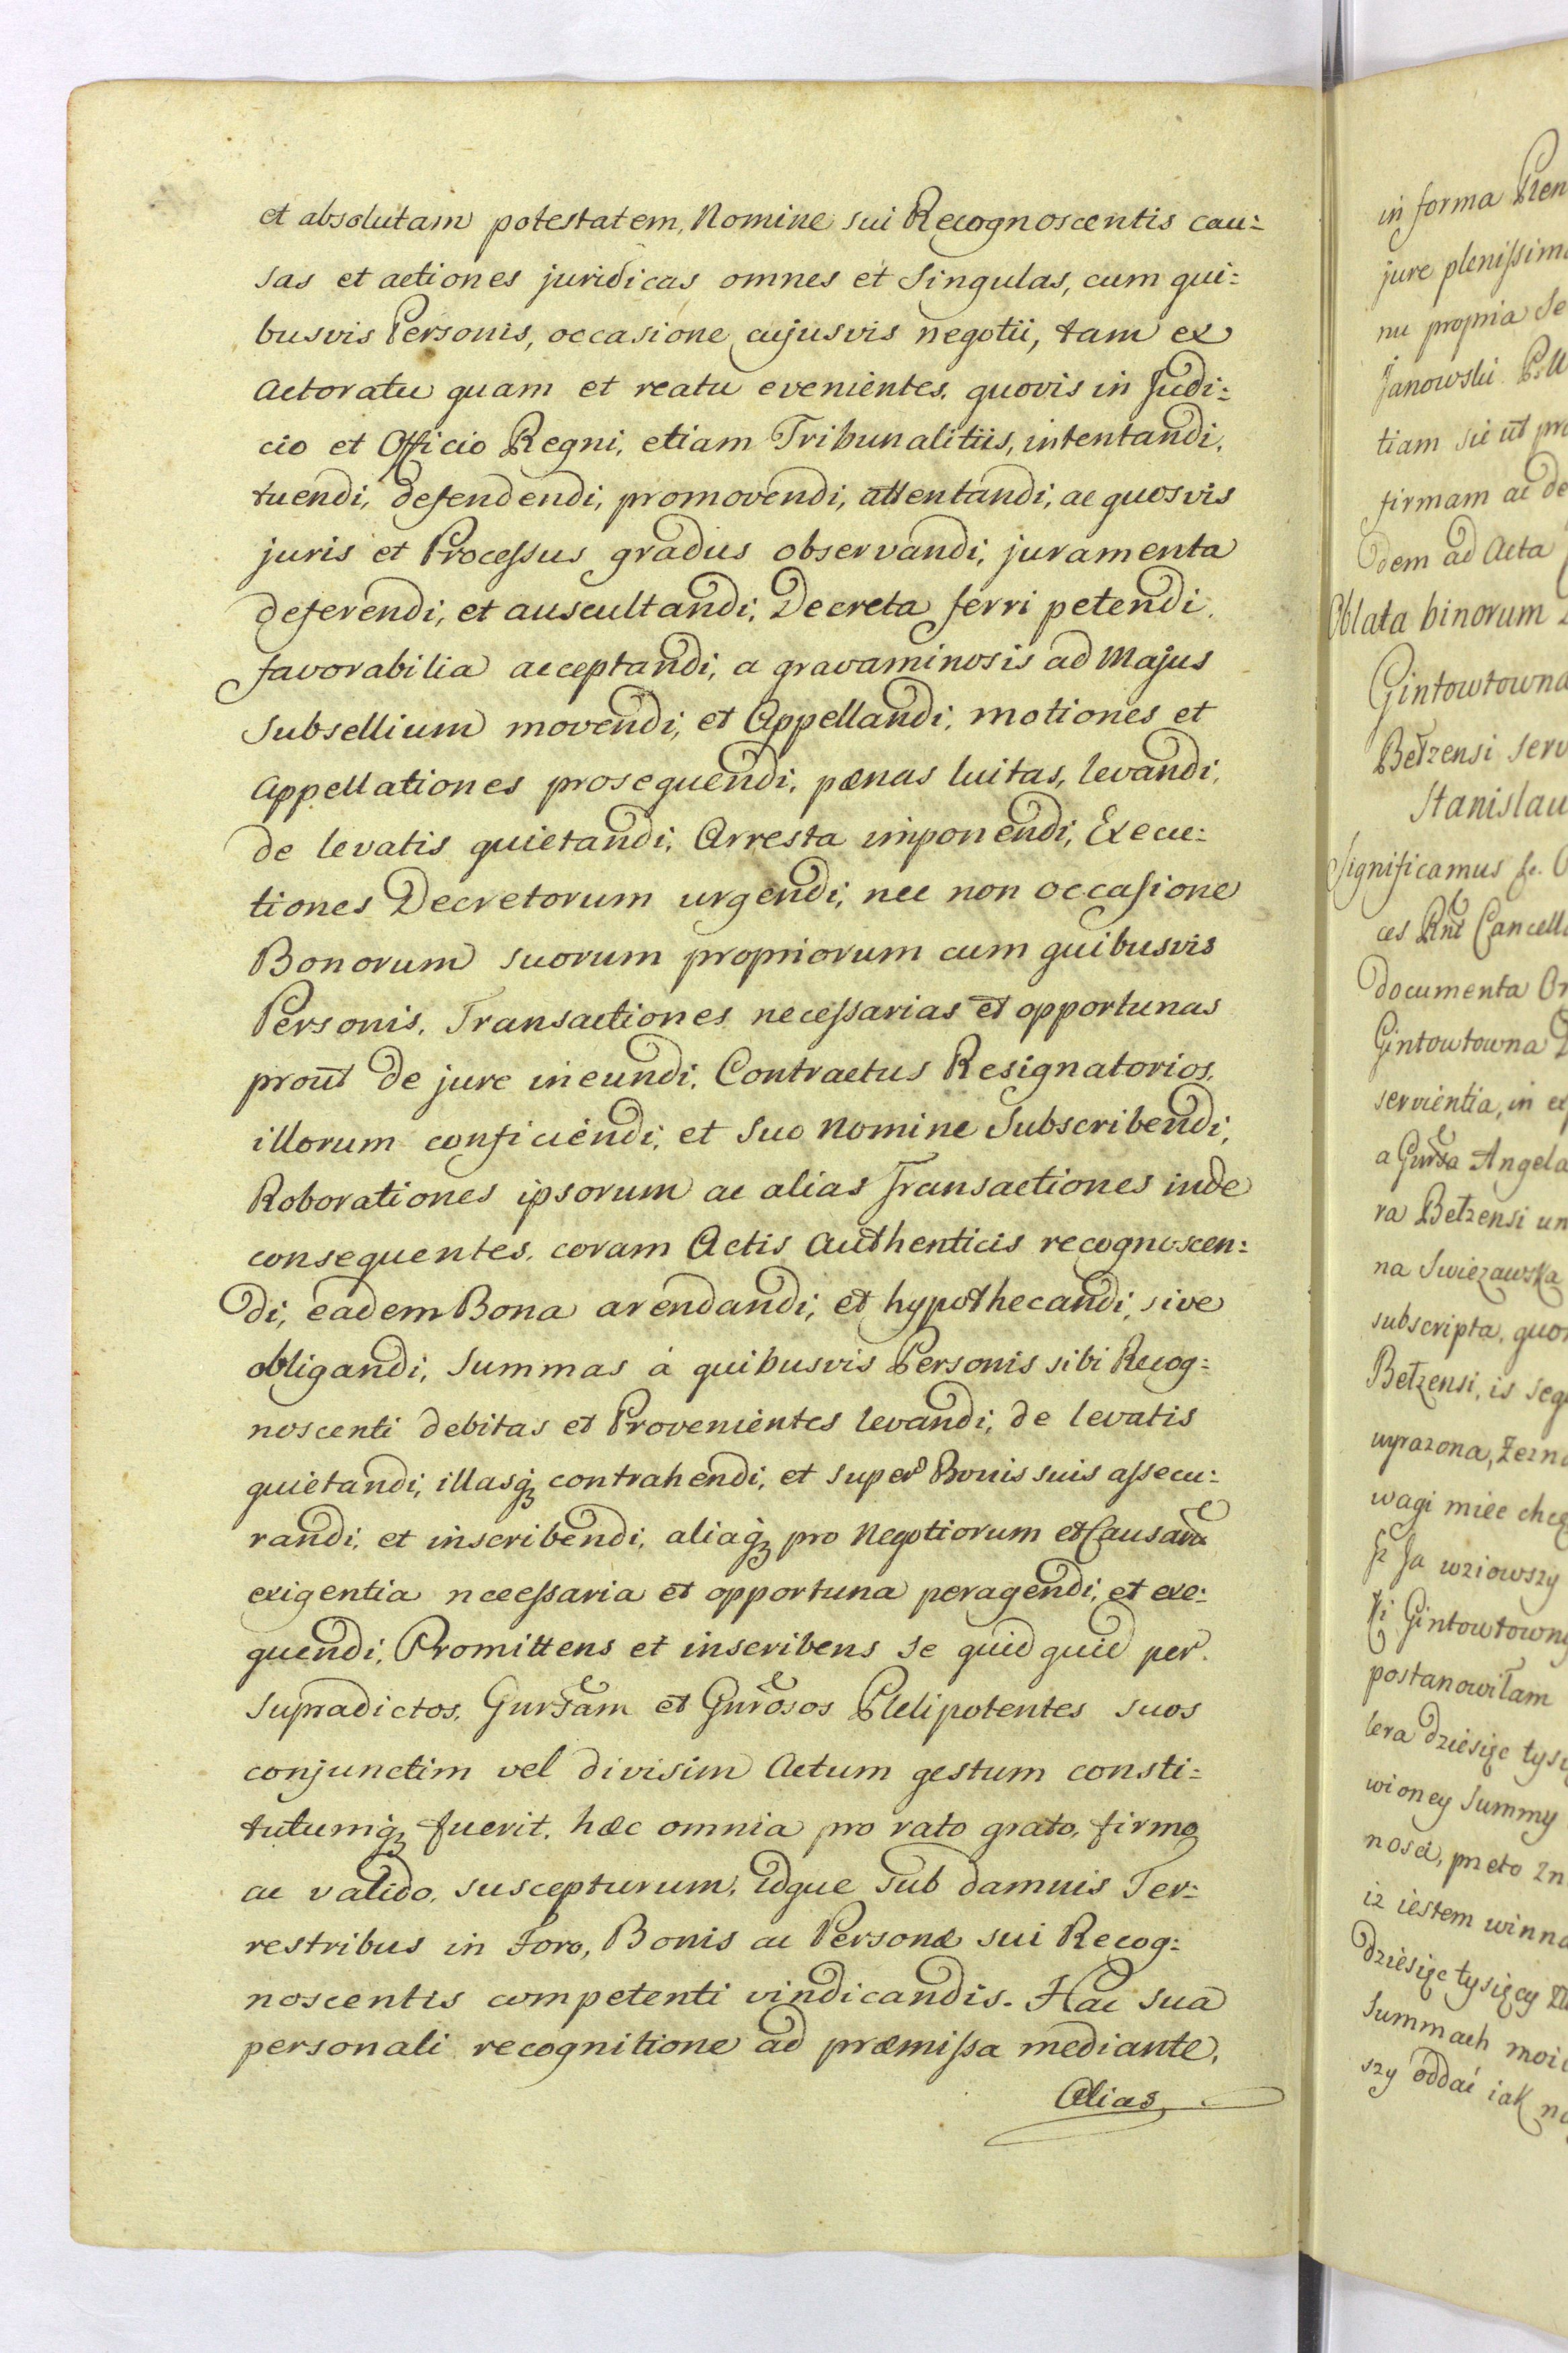 et absolutam potestatem, Nomine sui Recognoscentis cau:
sas et actiones juridicas omnes et Singulas, cum qui:
busvis Personis, occasione cujusvis negotii, tam ex
Actoratu quam et reatu evenientes, quovis in Judi:
cio et Officio Regni, etiam Tribunalitiis, intentandi,
tuendi, defendendi, promovendi, attentandi, ac quosvis
juris et Processus gradus observandi, juramenta
deferendi, et auscultandi, Decreta ferri petendi,
favorabilia acceptandi, a gravaminosis ad Majus
Subsellium movendi, et Appellandi, motiones et
Appellationes prosequendi, pænas luitas, levandi,
de levatis quietandi, Arresta imponendi, Execu:
tiones Decretorum urgendi, nec non occasione
Bonorum suorum propriorum cum quibusvis
Personis, Transactiones necessarias et opportunas
prout de jure ineundi, Contractus Resignatorios,
illorum conficiendi, et Suo Nomine Subscribendi,
Roborationes ipsorum ac alias Transactiones inde
consequentes, coram Actis Authenticis recognoscen:
di, eadem Bona arendandi, et hypothecandi, sive
obligandi, Summas à quibusvis Personis sibi Recog:
noscenti debitas et Provenientes levandi, de levatis
quietandi, illasq; contrahendi, et super Bonis suis assecu:
randi, et inscribendi, aliaq; pro Negotiorum et Causarū
exigentia necessaria et opportuna peragendi, et exe:
quendi, Promittens et inscribens Se quid quid per
Supradictos, Gursam et Gurosos Plelipotentes suos
conjunctim vel divisim Actum gestum consti:
tutumq; fuerit, hæc omnia pro rato grato, firmo
ac valido, suscepturum, Idque sub damnis Ter:
restribus in Foro, Bonis ac Personæ sui Recog:
noscentis competenti vindicandis. Hac sua
personali recognitione ad præmissa mediante,
Alias
in forma
jure plenissim
nu propria Se
Janowski
tiam sic ut pro
firmam ac de
dem ad Acta
Oblata binorum
Gintowtowna
Bełzensi serv
Stanislau
Significamus
ces Cancella
documenta Or
Gintowtowna
servientia, in ex
a Gursa Angela
ra Bełzensi un
na Swiezawska
subscripta, quor
Bełzensi, is sequ
wyrazona, Zezna
wagi miec chcę
Ja wziowszy
Gintowtowny
postanowiłam
lera dziesięc tysi
wioney Summy
nosci, przeto Zn
iz iestem winna
dziesięc tysięcy
Summach moi
szy oddać iak na